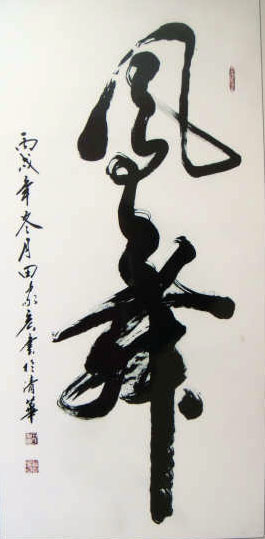 風舞
丙戌年冬月田家書於清華